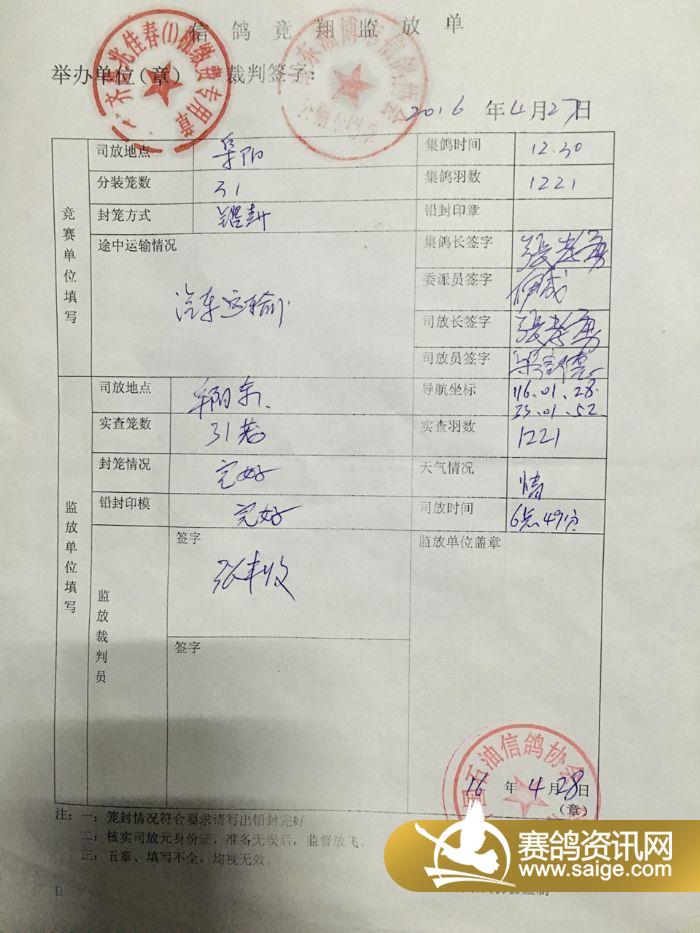 信鸽竞翔监放单
举办单位(章) 裁判签字:
2016 年 4 月 27 日
竞赛单位填写
司放地点 阜阳 集鸽时间 12.30
分装笼数 31 集鸽羽数 1221
封笼方式 铅封 铅封印章
途中运输情况 集鸽长签字
汽车运输
委派员签字
司放长签字
司放员签字
监放单位填写
司放地点 导航坐标 116.01.28
实查笼数 31 实查羽数 1221
封笼情况 完好 天气情况 晴
铅封印模 完好 司放时间 6点49分
监放裁判员
签字 监放单位盖章
张丰收
签字
石油信鸽协会
16 年 4 月 28 日
(章)
注: 一: 笼封情况符合要求请写出铅封完好
二: 核实司放元身份证, 准备无误后, 监督放飞。
三: 五章、填写不全, 均视无效。
赛鸽资讯网
www.saige.com